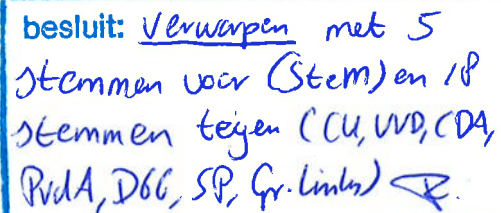 besluit: Verwerpen met 5
stemmen voor (Stem) en 18
stemmen tegen (CU, VVD, CDA,
PvdA, D66, SP, Gr. Links)